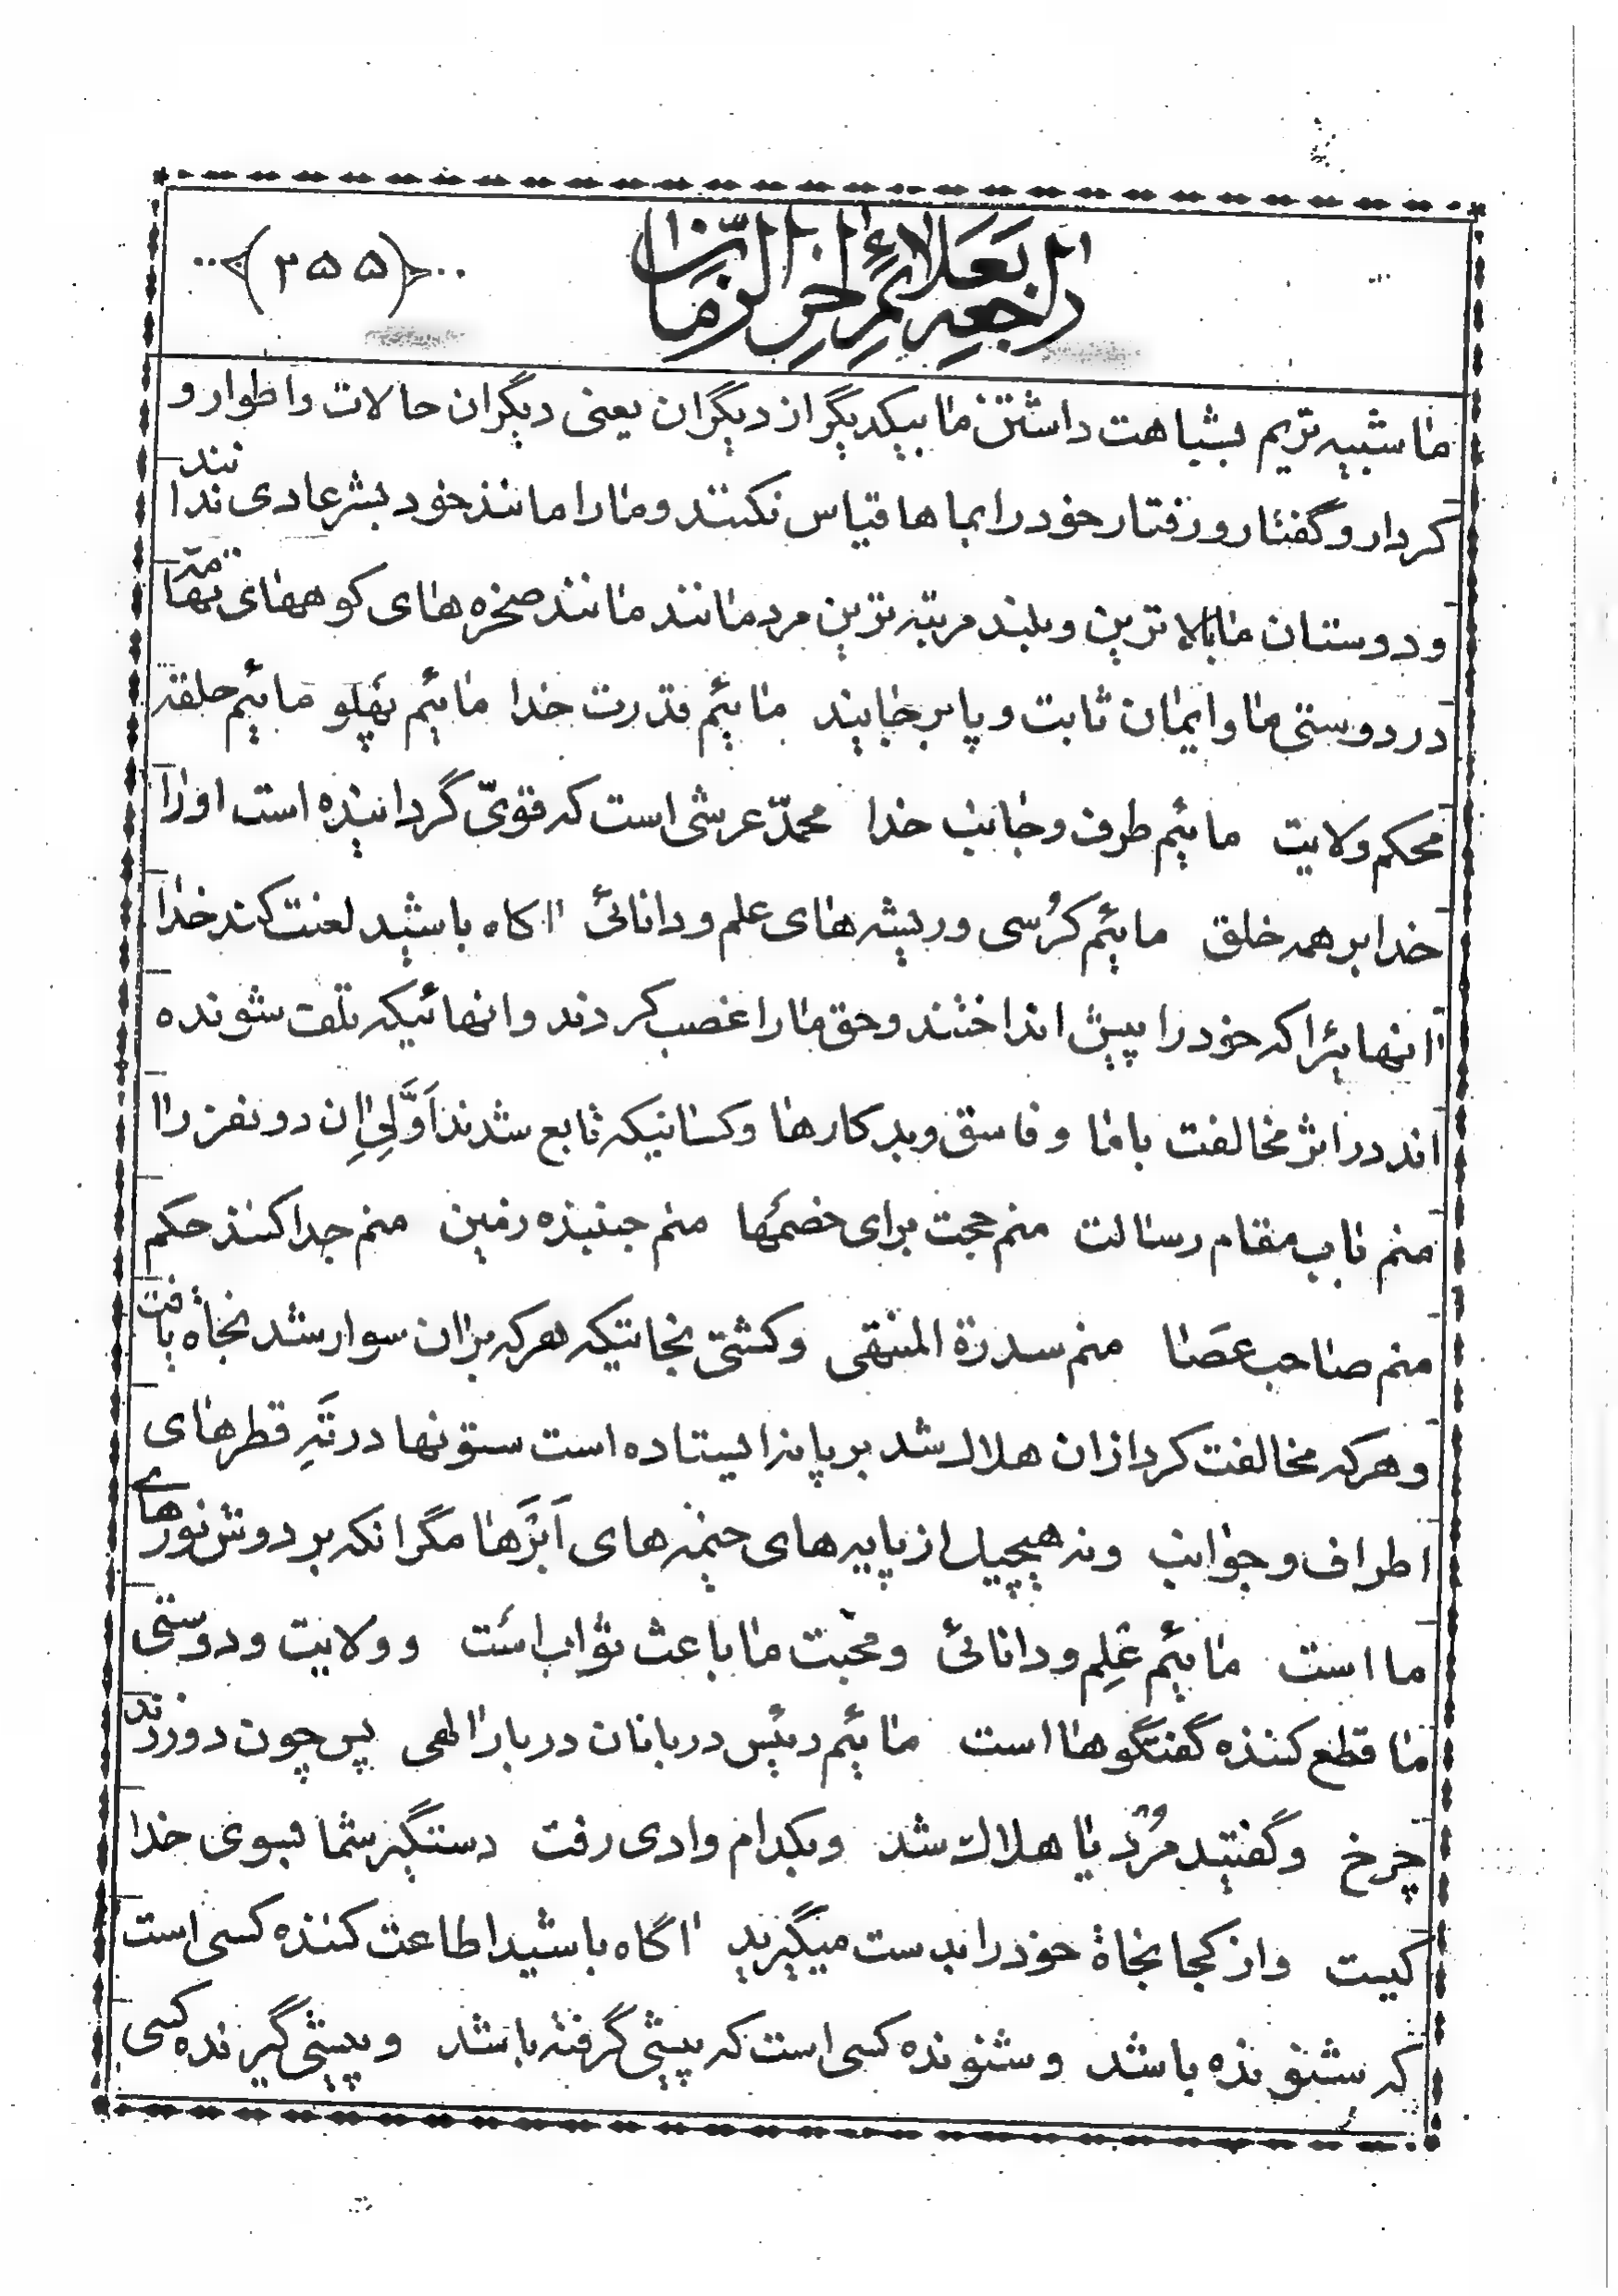 راجعه بعلائم آخر الزمان
(۲۵۵)
ما شبیه تریم بشباهت داشتن ما بیکدیگر از دیگران یعنی دیگران حالات و اطوار و
کردار و گفتار و رفتار خود را بماها قیاس نکنند و ما را مانند خود بشر عادی ندانند
و دوستان ما بالا ترین و بلند مرتبه ترین مردمانند مانند صخره های کوههای تهامه
در دوستی ما و ایمان ثابت و پا برجایند مائیم قدرت خدا مائیم پهلو مائیم حلقه
محکم ولایت مائیم طرف و جانب خدا محمّد عرشی است که قویّ گردانیده است او را
خدا بر همه خلق مائیم کرُسی و ریشه های علم و دانائی آگاه باشید لعنت کند خدا
آنهائیرا که خود را پیش انداختند و حق ما را غصب کردند و انهائیکه تلف شونده
اند در اثر مخالفت با ما و فاسق و بدکارها و کسانیکه تابع شدند اَوَّلیِ اِن دو نفر را
منم ناب مقام رسالت منم حجت برای خصمَها منم جنبنده زمین منم جدا کننده حکم
منم صاحب عصَا منم سدرة المنتهی و کشتی نجاتیکه هر که بران سوار شد نجاة یافت
و هر که مخالفت کرد ازان هلاک شد بر پا نه ایستاده است ستونها در تَهِ قطرهای
اطراف و جوانب و نه هیچیک از پایه های خیمه های اَبَرَها مگر انکه بر دوش نورهای
ما است مائیم عَلِم و دانائی و محبت ما باعث ثواب است و ولایت و دوستی
ما قطع کننده گفتگوها است مائیم رئیس دربانان دربار الهی پس چون دور زند
چرخ و گفتید مرُد یا هلاک شد و بکدام وادی رفت دستگیر شما بسوی خدا
کیست و از کجا نجاة خود را بدست میگیرید آگاه باشید اطاعت کننده کسی است
که شنونده باشد و شنونده کسی است که پیشی گرفته باشد و پیشی گیرنده کسی